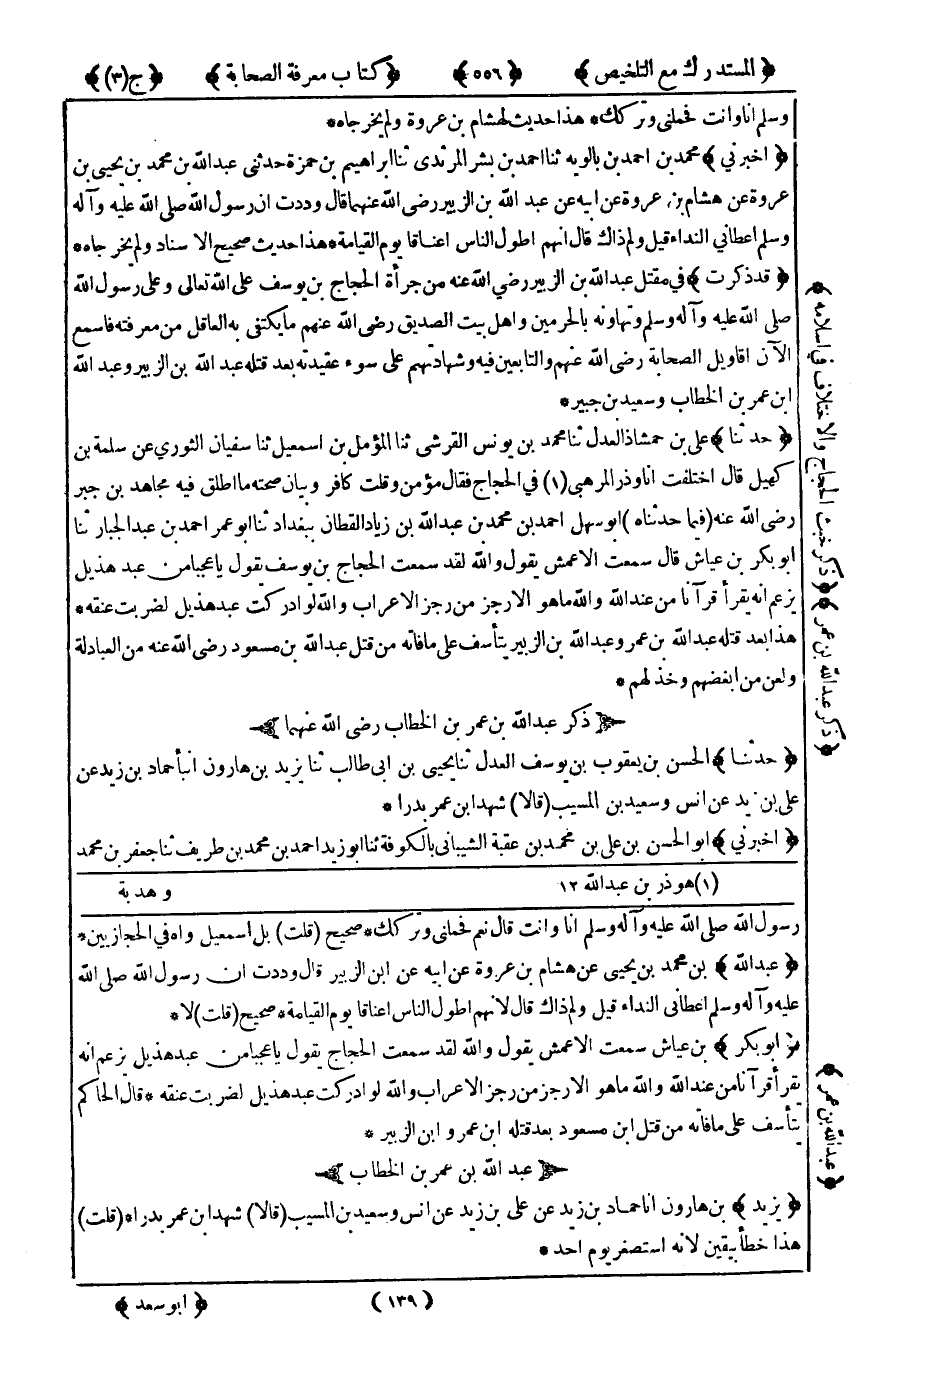 ﴿ المستدرك مع التلخيص ﴾ ﴿ ٥٥٦ ﴾ ﴿ كتاب معرفة الصحابة ﴾ ﴿ ج(٣) ﴾
وسلم انا وانت فحملني وتركك * هذا حديث لهشام بن عروة ولم يخرجاه *
﴿ اخبرني ﴾ محمد بن احمد بن بالويه ثنا احمد بن بشر المرثدى ثنا ابراهيم بن حمزة حدثنى عبدالله بن محمد بن يحيى بن
عروة عن هشام بن عروة عن ابيه عن عبد الله بن الزبير رضى الله عنهما قال وددت ان رسول الله صلى الله عليه وآله
وسلم اعطاني النداء قيل ولم ذاك قال انهم اطول الناس اعناقا يوم القيامة * هذا حديث صحيح الاسناد ولم يخرجاه *
﴿ قد ذكرت ﴾ في مقتل عبدالله بن الزبير رضي الله عنه من جرأة الحجاج بن يوسف على الله تعالى وعلى رسول الله
صلى الله عليه وآله وسلم وتهاونه بالحرمين واهل بيت الصديق رضى الله عنهم ما يكتفى به العاقل من معرفته فاسمع
الآن اقاويل الصحابة رضى الله عنهم والتابعين فيه وشهادتهم على سوء عقيدته بعد قتله عبد الله بن الزبير وعبد الله
ابن عمر بن الخطاب وسعيد بن جبير *
﴿ حدثنا ﴾ على بن حمشاذ العدل ثنا محمد بن يونس القرشى ثنا المؤمل بن اسمعيل ثنا سفيان الثوري عن سلمة بن
كهيل قال اختلفت انا وذر المرهبى (١) في الحجاج فقال مؤمن وقلت كافر وبيان صحته ما اطلق فيه مجاهد بن جبر
رضى الله عنه (فيما حدثناه) ابو سهل احمد بن محمد بن عبدالله بن زياد القطان ببغداد ثنا ابو عمر احمد بن عبدالجبار ثنا
ابو بكر بن عياش قال سمعت الاعمش يقول والله لقد سمعت الحجاج بن يوسف يقول يا عجبا من عبد هذيل
يزعم انه يقرأ قرآنا من عندالله والله ما هو الا رجز من رجز الاعراب والله لو ادركت عبد هذيل لضربت عنقه *
هذا بعد قتله عبدالله بن عمر وعبدالله بن الزبير يتأسف على ما فاته من قتل عبدالله بن مسعود رضى الله عنه من العبادلة
ولعن من ابغضهم وخذلهم *
ذكر عبدالله بن عمر بن الخطاب رضى الله عنهما
﴿ حدثنا ﴾ الحسن بن يعقوب بن يوسف العدل ثنا يحيى بن ابى طالب ثنا يزيد بن هارون انبأ حماد بن زيد عن
على بن زيد عن انس وسعيد بن المسيب (قالا) شهد ابن عمر بدرا *
﴿ اخبرني ﴾ ابو الحسن بن على بن محمد بن عقبة الشيبانى بالكوفة ثنا ابو زيد احمد بن محمد بن طريف ثنا جعفر بن محمد
(١) هو ذر بن عبدالله ١٢ وهدبة
رسول الله صلى الله عليه وآله وسلم انا وانت قال نعم فحملنى وتركك * صحيح (قلت) بل اسمعيل واه في الحجازيين *
﴿ عبدالله ﴾ بن محمد بن يحيى عن هشام بن عروة عن ابيه عن ابن الزبير قال وددت ان رسول الله صلى الله
عليه وآله وسلم اعطانى النداء قيل ولم ذاك قال لانهم اطول الناس اعناقا يوم القيامة * صحيح (قلت) لا *
﴿ ابو بكر ﴾ بن عياش سمعت الاعمش يقول والله لقد سمعت الحجاج يقول يا عجبا من عبد هذيل يزعم انه
يقرأ قرآنا من عند الله والله ما هو الا رجز من رجز الاعراب والله لو ادركت عبد هذيل لضربت عنقه * قال الحاكم
يتأسف على ما فاته من قتل ابن مسعود بعد قتله ابن عمر و ابن الزبير *
عبد الله بن عمر بن الخطاب
﴿ يزيد ﴾ بن هارون انا حماد بن زيد عن على بن زيد عن انس وسعيد بن المسيب (قالا) شهد ابن عمر بدرا * (قلت)
هذا خطأ بيقين لانه استصغر يوم احد *
(١٣٩) ﴿ ابو سعد ﴾
﴿ ذكر خبث الحجاج والاختلاف في اسلامه ﴾
﴿ ذكر عبدالله بن عمر ﴾
﴿ عبدالله بن عمر ﴾